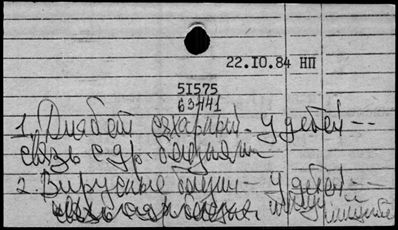 22.10.84 НП
51575
63441
1. Диабет сахарный - у детей --
связь с др. болезнями
2. Вирусные болезни - у детей --